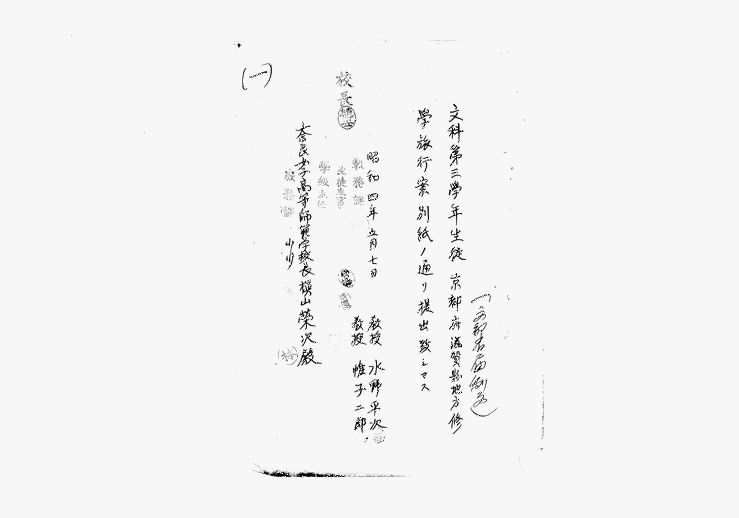 (一)
文科第三學年生徒 京都府滋賀縣地方修
學旅行案別紙ノ通リ提出致シマス
昭和四年五月七日
教授 水野平次
教授 惟子二郎
奈良女子高等師範学校長 槇山榮次殿
校長
教務課
生徒監事
學級主任
校務課